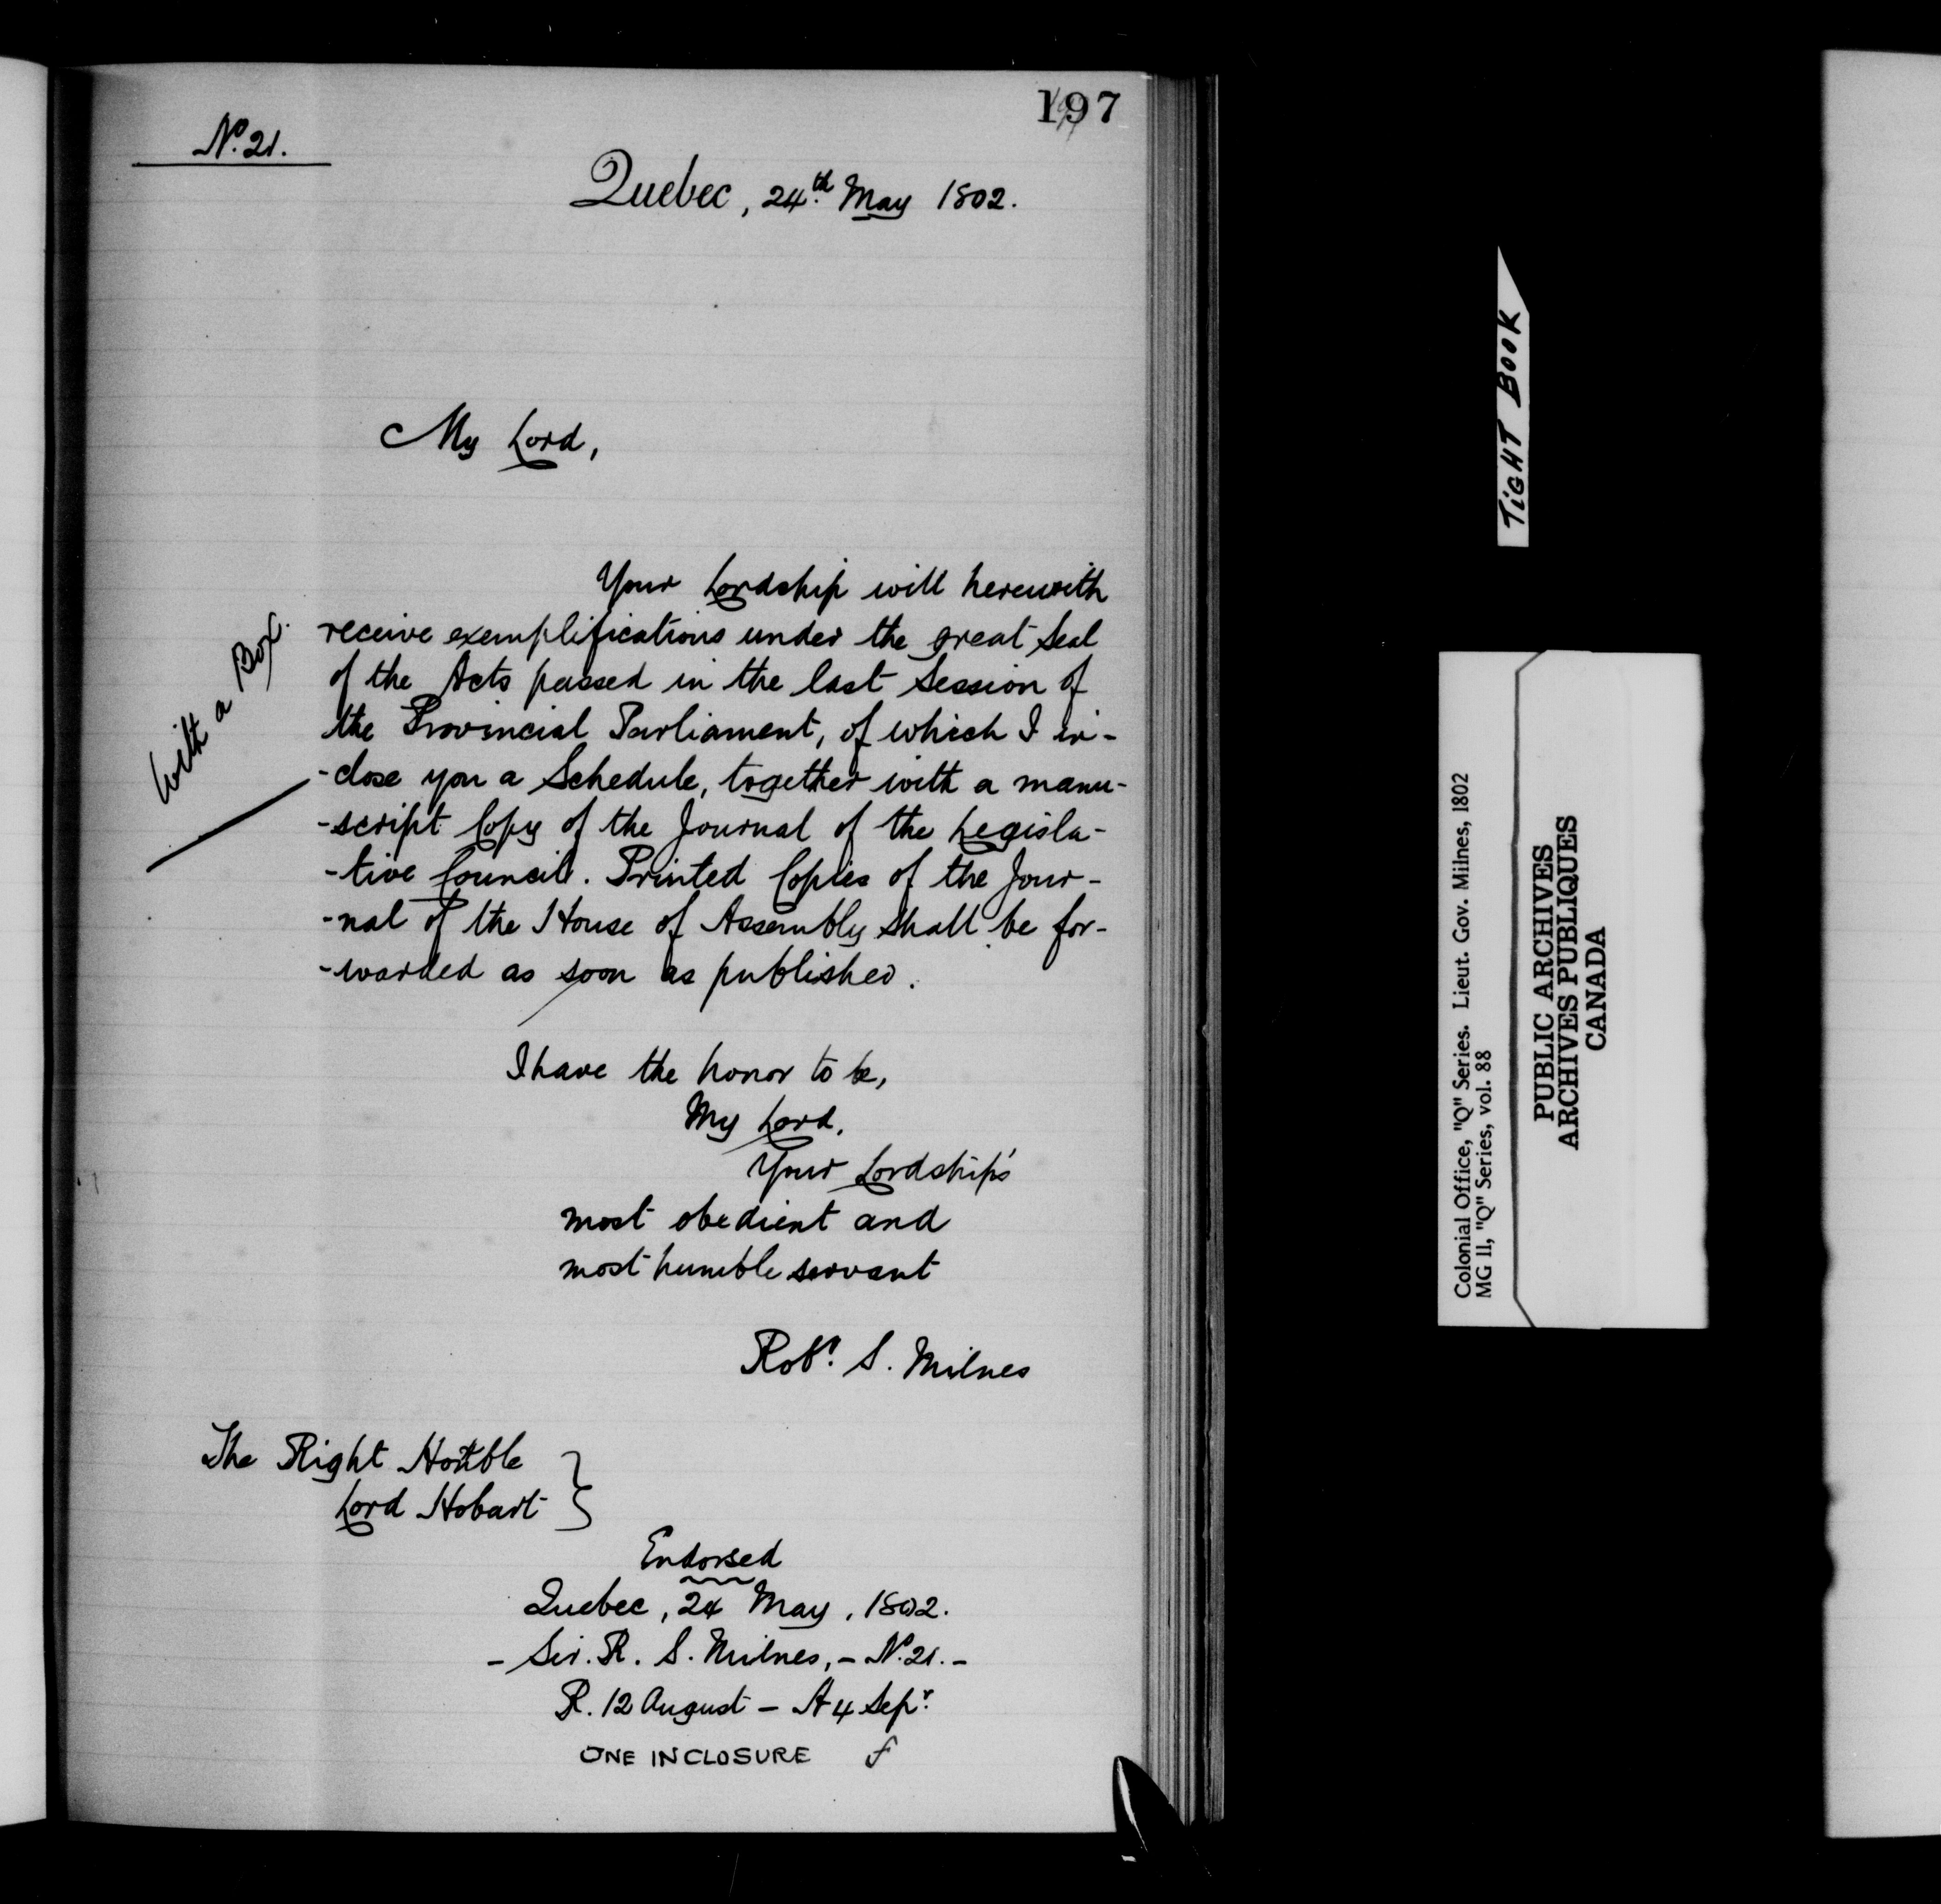 197
No. 21.
Quebec, 24th. May 1802.
My Lord,
Your Lordship will herewith
receive exemplifications under the great Seal
of the Acts passed in the last Session of
the Provincial Parliament, of which I in-
-close you a Schedule, together with a manu-
-script Copy of the Journal of the Legisla-
-tive Council. Printed Copies of the Jour-
-nal of the House of Assembly shall be for-
-warded as soon as published.
With a Box.
I have the honor to be,
My Lord,
Your Lordship's
most obedient and
most humble servant
Robt. S. Milnes
The Right Honble
Lord Hobart
Endorsed
Quebec, 24 May, 1802.
- Sir. R. S. Milnes, - No. 21. -
R. 12 August - A 4 Sepr.
ONE INCLOSURE f
TiGHT BOOK
Colonial Office, "Q" Series. Lieut. Gov. Milnes, 1802
MG 11, "Q" Series, vol. 88
PUBLIC ARCHIVES
ARCHIVES PUBLIQUES
CANADA